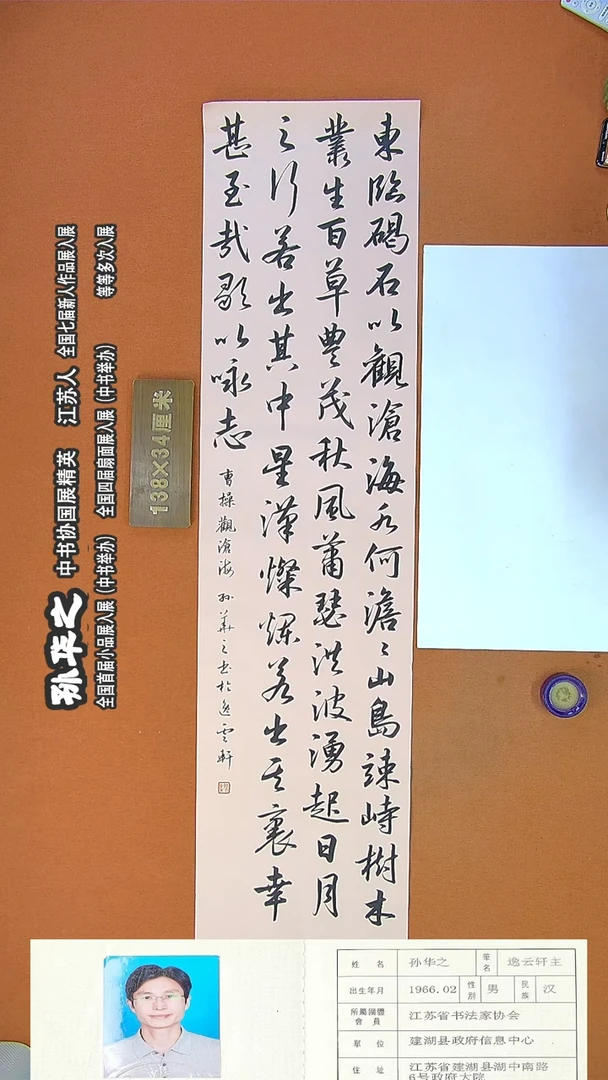 東臨碣石以觀滄海水何澹〻山島竦峙樹木
叢生百草豐茂秋風蕭瑟洪波湧起日月
之行若出其中星漢燦爛若出其裏幸
甚至哉歌以咏志
曹操觀滄海 孫華之書於逸雲軒
138×34厘米
孙华之 中书协国展精英 江苏人 全国七届新人作品展入展
全国首届小品展入展(中书举办) 全国四届扇面展入展(中书举办) 等等多次入展
姓名 孙华之 笔名 逸云轩主
出生年月 1966.02 性别 男 民族 汉
所屬團體會員 江苏省书法家协会
單位 建湖县政府信息中心
住址 江苏省建湖县湖中南路
6号政府大院